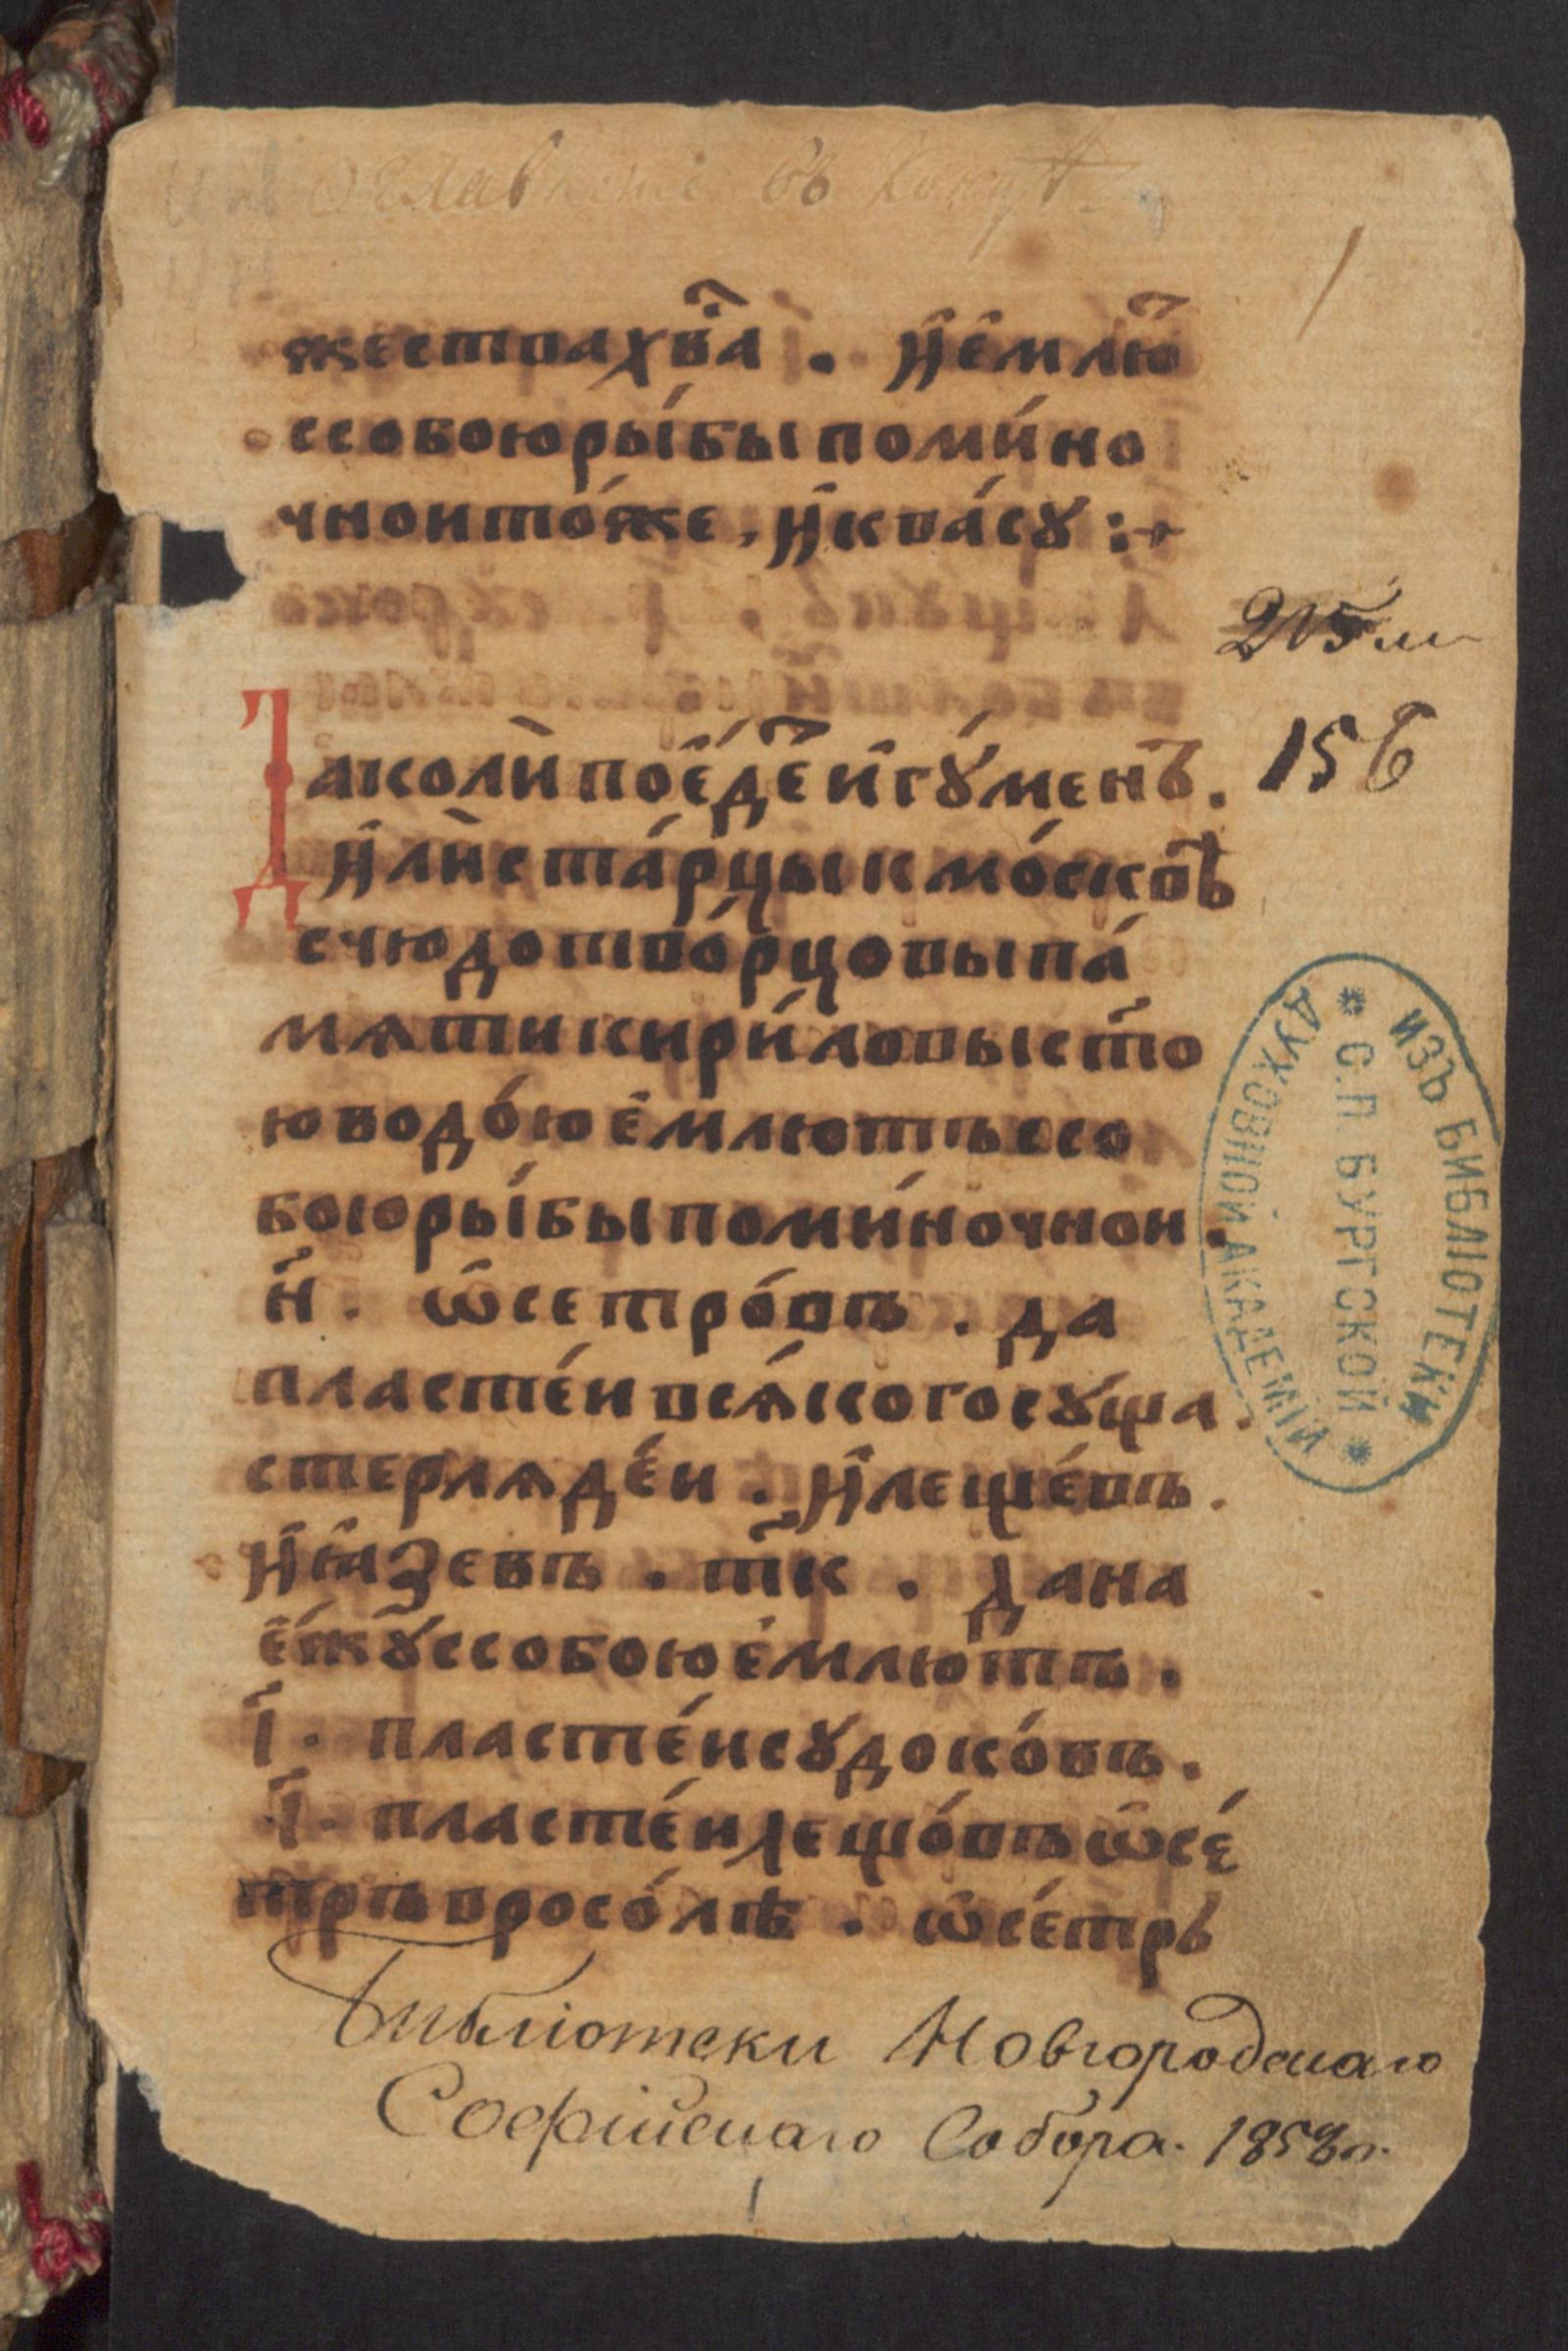 оглавленіе въ концѣ
1
жествахв҃а . и҆е҆млю҆т
ссобоюры́быпоми́но
чноитоⷤже , и҆ква́су :~
205 л
156
Даколи̏пое҆́деⷮи҆гꙋ́менъ .
и҆ли̏ста́рцыкмо́сквѣ
счюдотво́рцовыпа́
мѧтикири́ловыст҃о
юводо́юе҆млютьссо
боюры́быпоми́ночнои .
и҃ . ѡ҆сетро́въ . да
пласте́ивсѧ́когосꙋща .
стерлѧде́и . и҆леще́въ .
и҆ꙗ҆зевъ . т҃к . дана
е҆жꙋссобоюе҆млю́тъ .
і҃ . пласте́исꙋдоко́въ .
і҃ . пласте́илещо́въѡ҆се́
тръвросо́лѣ . ѡ҆се́тръ
Библіотеки Новгородскаго
Софійскаго Собора. 1858 г.
ИЗЪ БИБЛІОТЕКИ
* С.П. БУРГСКОЙ *
ДУХОВНОЙ АКАДЕМІИ